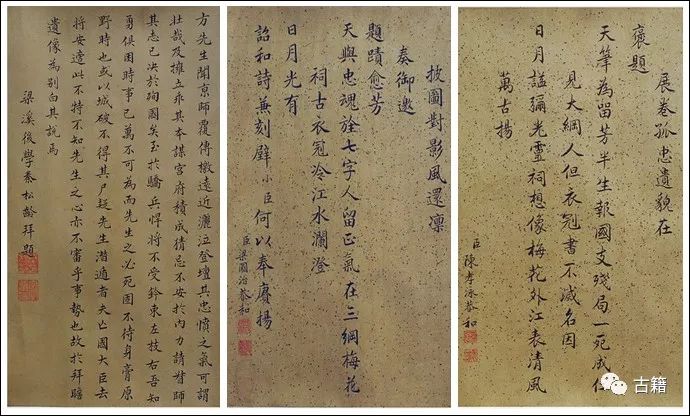 方先生聞京師覆傳檄遠近灑泣登壇其忠憤之氣可謂
壯哉及擁立乖其本謀宮府積成猜忌不安於內力請督師
其志已決於殉國矣至於驕兵悍將不受鈐束左枝右吾知
勇俱困時事已萬不可為而先生之必死固不待身膏原
野時也或以城破不得其尸疑先生潛遁者夫亡國大臣去
將安適此不特不知先生之心亦不審乎事勢也故於拜瞻
遺像為別白其說焉
梁溪後學秦松齡拜題
披圖對影風還凜
奏御邀
題蹟愈芳
天與忠魂詮七字人留正氣在三綱梅花
祠古衣冠冷江水瀾澄
日月光有
詔和詩兼刻壁小臣何以奉賡揚
臣梁國治恭和
展卷孤忠遺貌在
褒題
天筆為留芳半生報國支殘局一死成仁
見大綱人但衣冠書不滅名因
日月謚彌光靈祠想像梅花外江表清風
萬古揚
臣陳孝泳恭和
古籍